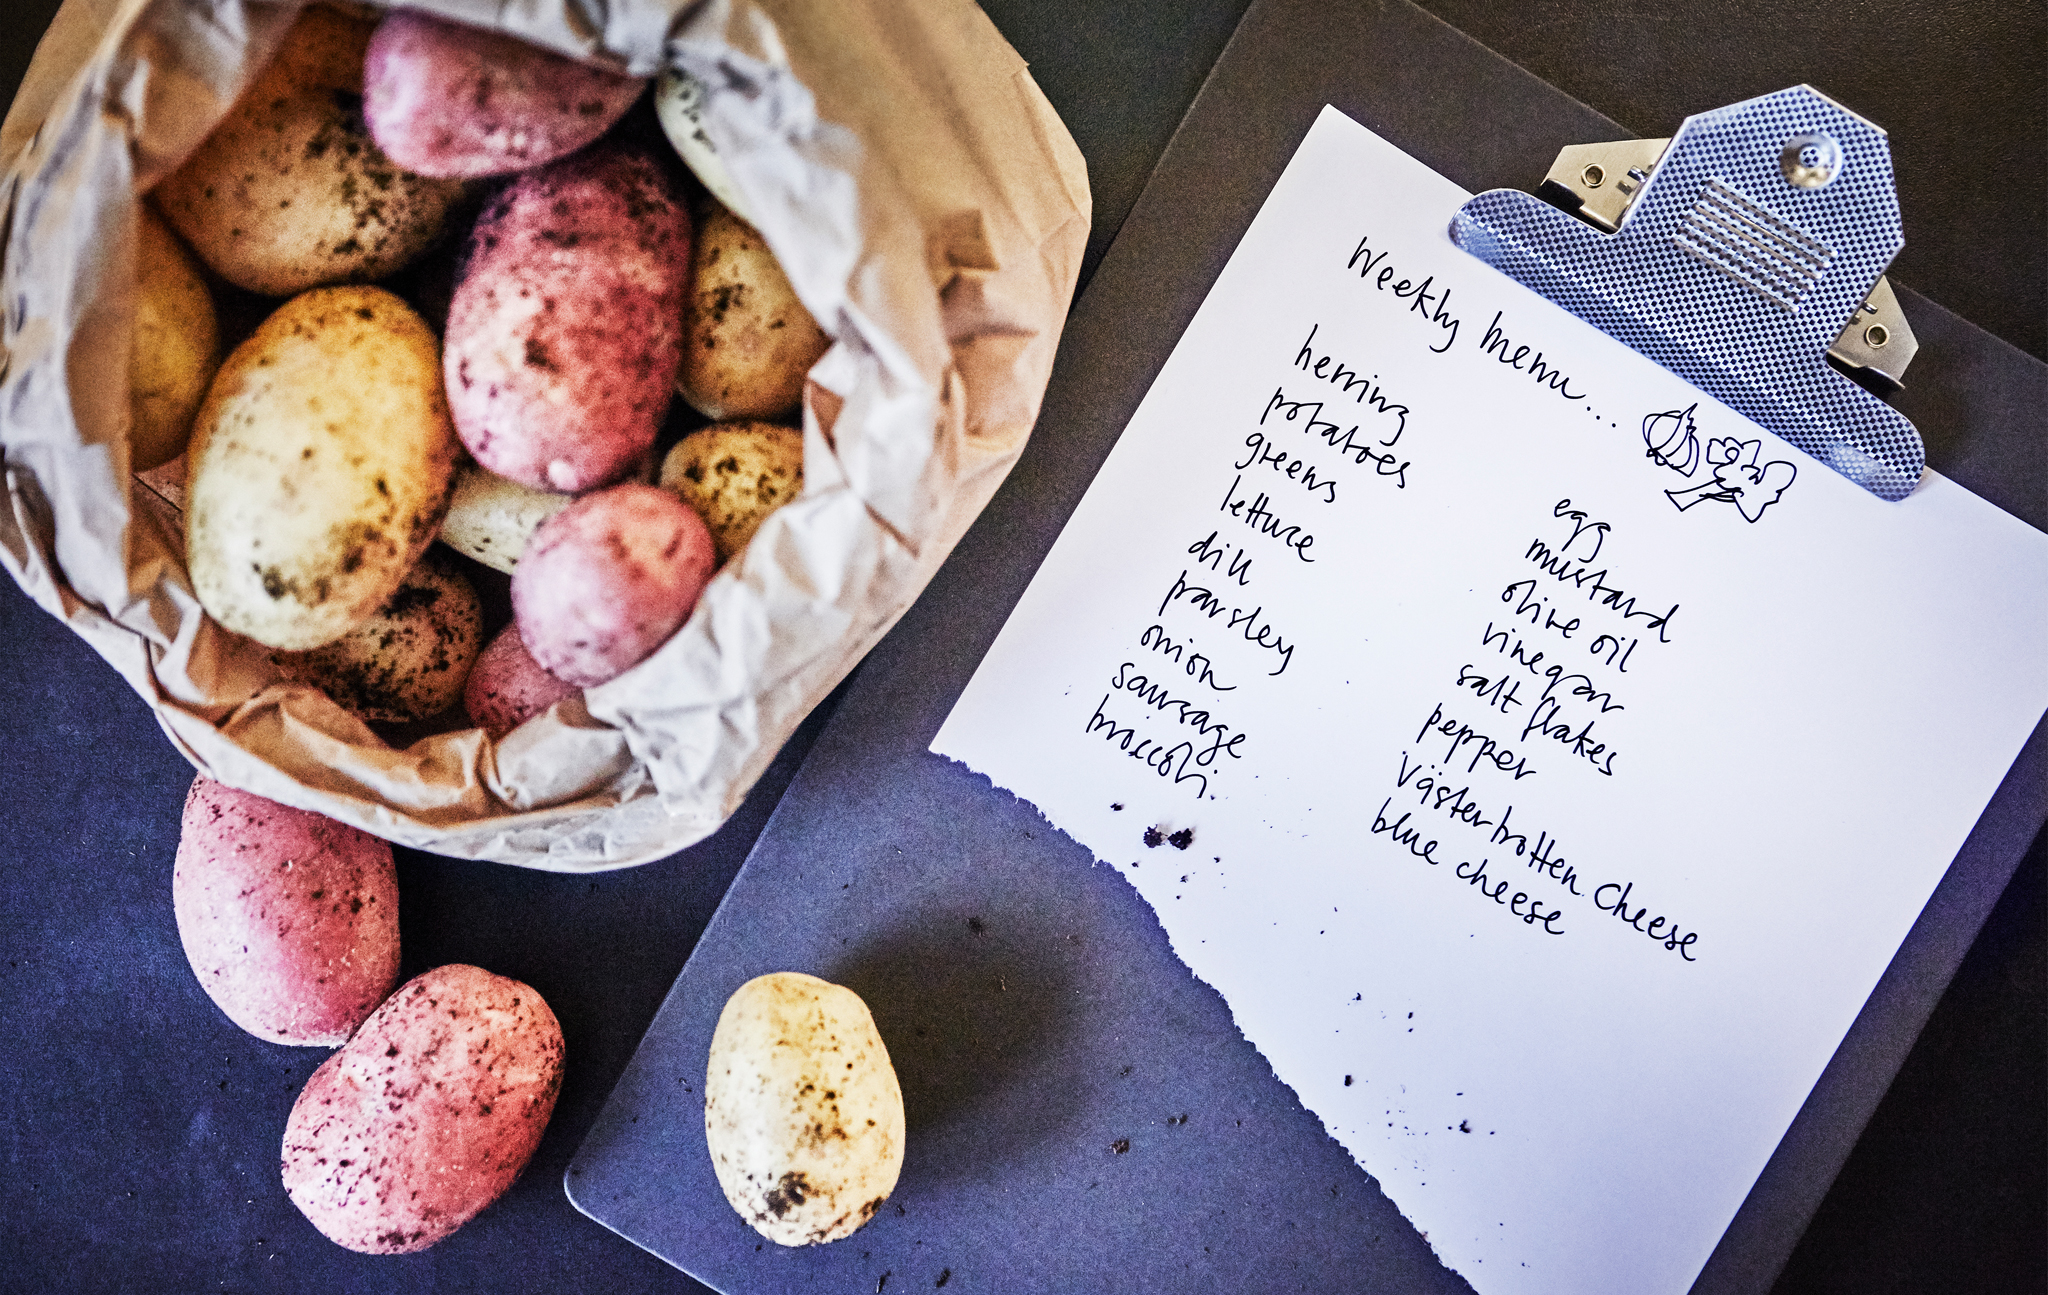 Weekly menu...
herring
potatoes
greens
lettuce
dill
parsley
onion
sausage
broccoli
egg
mustard
olive oil
vinegar
salt flakes
pepper
Västerbotten Cheese
blue cheese